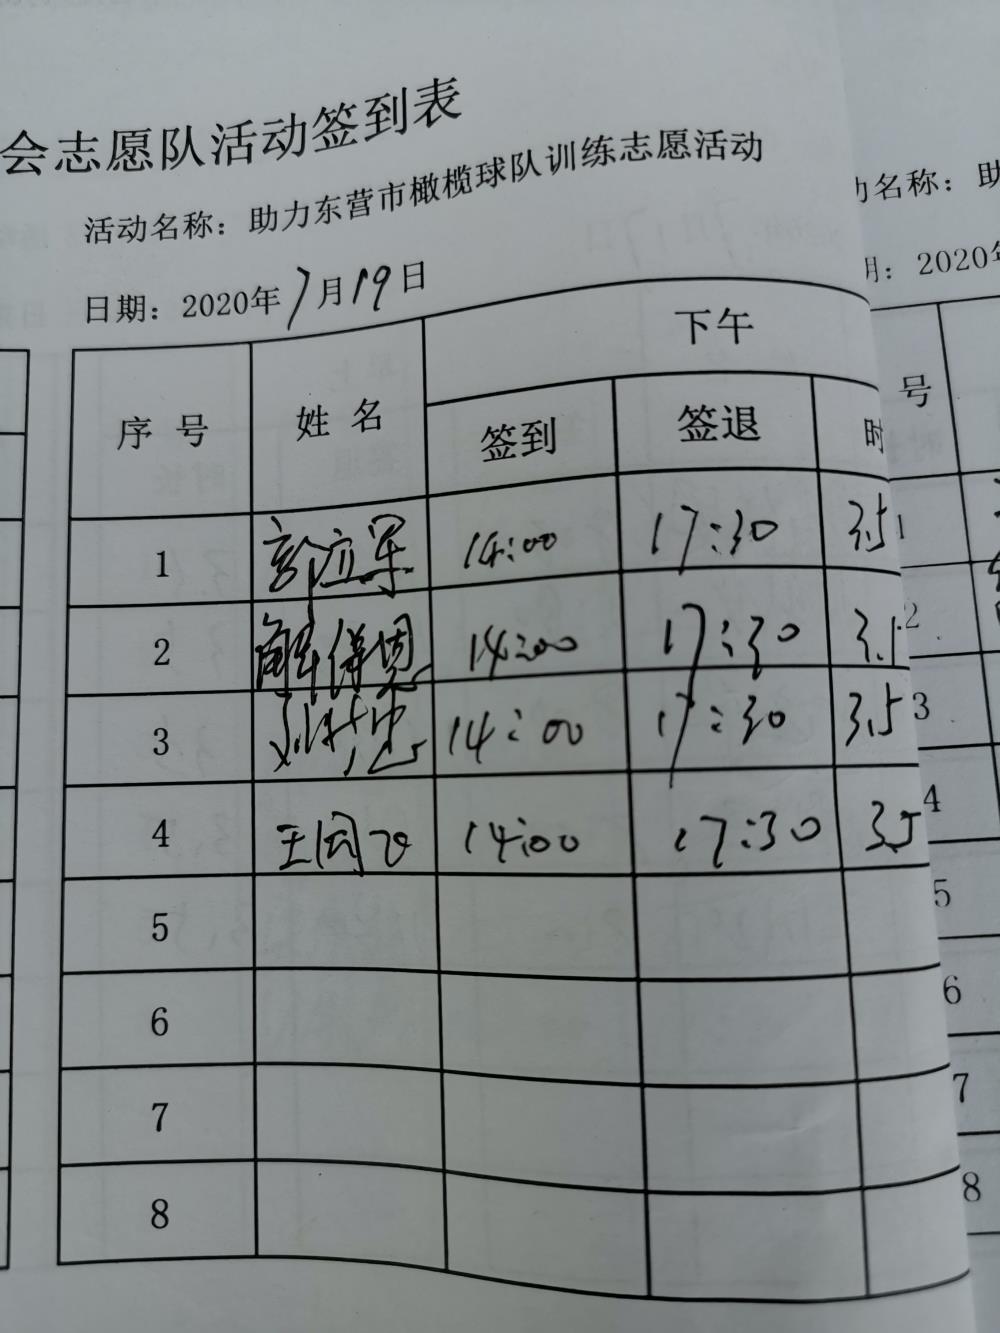 会志愿队活动签到表
活动名称：助力东营市橄榄球队训练志愿活动
日期：2020年7月19日
序号 姓名 下午
签到 签退 时
1 郭立军 14:00 17:30 3.5
2 14:00 17:30 3.
3 14:00 17:30 3.5
4 王国飞 14:00 17:30 3.5
5
6
7
8
名称：助
2020年
号
1
2
3
4
5
6
7
8